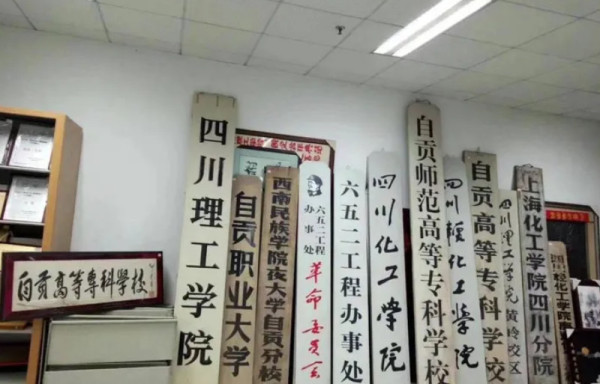 四川理工学院
自贡职业大学
西南民族学院夜大学自贡分校
六五二工程
办事处
革命委员会
六五二工程办事处
四川化工学院
自贡师范高等专科学校
四川轻化工学院
自贡高等专科学校
四川理工学院黄岭校区
上海化工学院四川分院
自贡高等專科學校